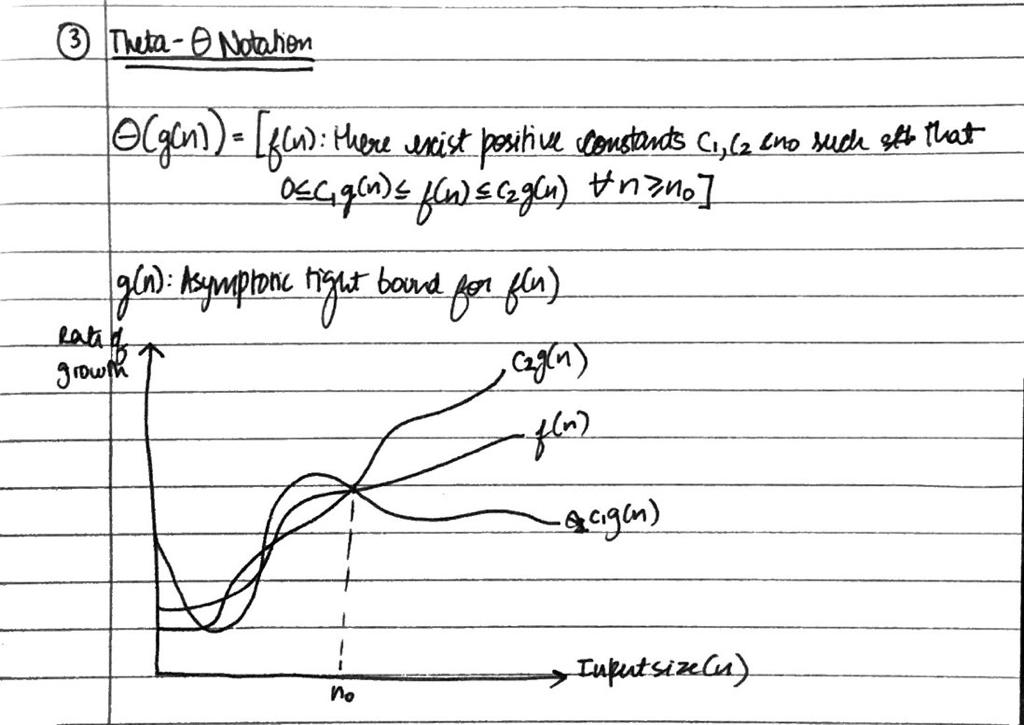 ③ Theta - Θ Notation
Θ(g(n)) = [f(n): there exist positive constants C₁, C₂ & n₀ such that
0≤C₁g(n)≤ f(n) ≤ C₂g(n) ∀ n ≥ n₀]
g(n): Asymptotic tight bound for f(n)
Rate of
growth
C₂g(n)
f(n)
C₁g(n)
n₀
Input size (n)